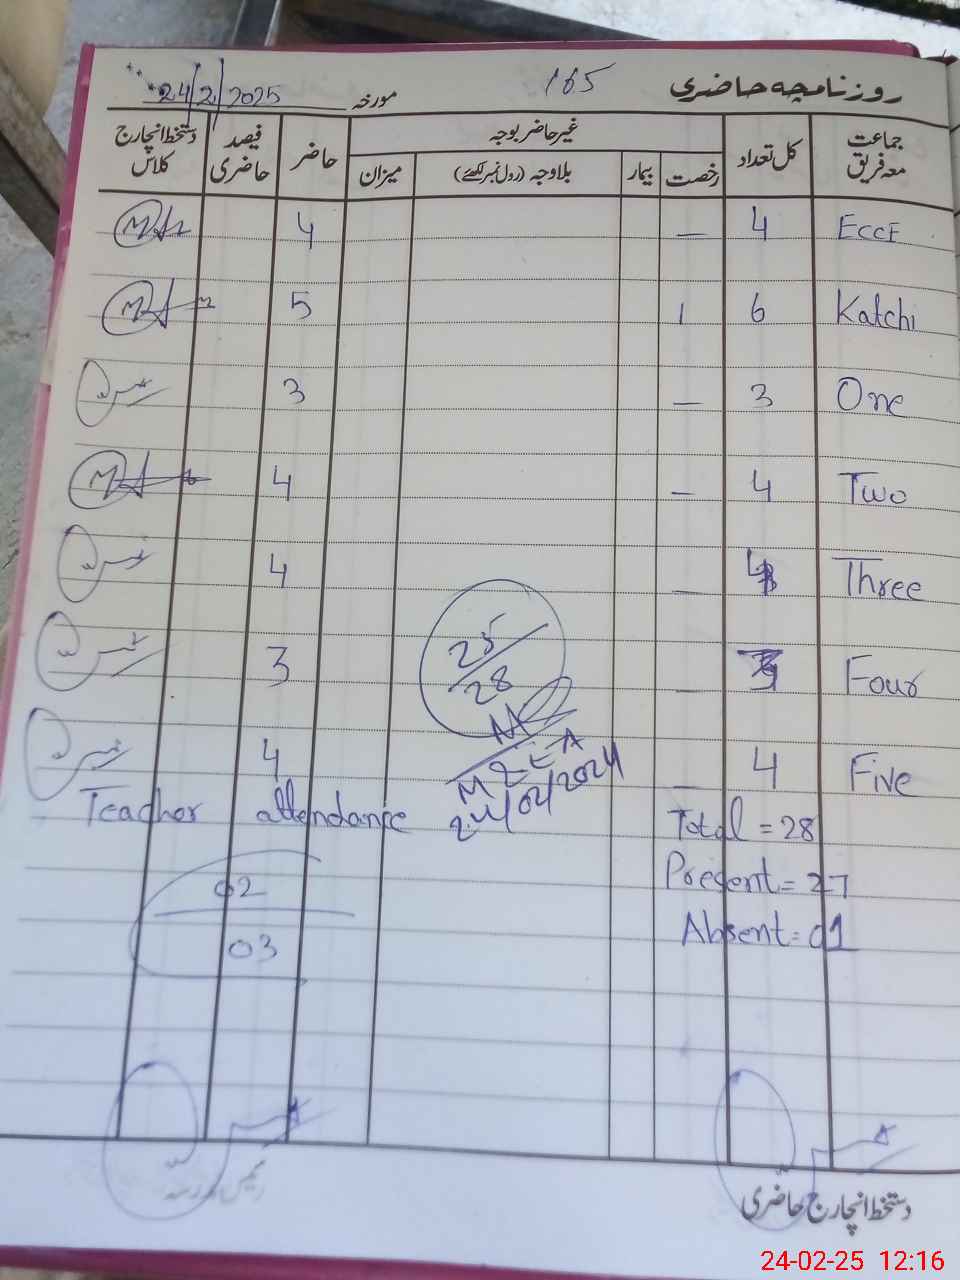 روزنامچہ حاضری
165
مورخہ 24/2/2025
جماعت معہ فریق کل تعداد غیر حاضر بوجہ حاضر فیصد حاضری دستخط انچارج کلاس
رخصت بیمار بلاوجہ (رول نمبر لکھئے) میزان
ECCE 4 — 4
Katchi 6 1 5
One 3 — 3
Two 4 — 4
Three 4 — 4
Four 3 — 3
Five 4 — 4
25/28
M&EA
24/02/2024
Total = 28
Present = 27
Absent = 01
Teacher attendance
02
03
دستخط انچارج حاضری
24-02-25 12:16